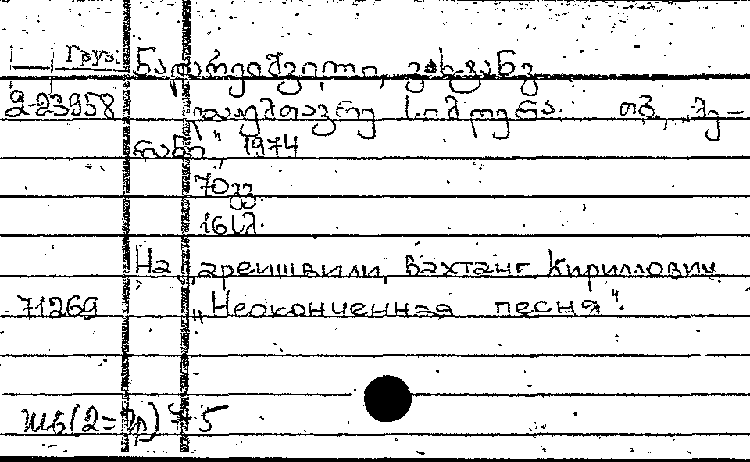 Груз. ნადარეიშვილი, ვახტანგ
223958 დაუმთავრებელი სიმღერა. თბ., „მე-
რანი“, 1974
70 გვ
16 სმ.
Надареишвили, Вахтанг Кириллович
71269 „Неоконченная песня“.